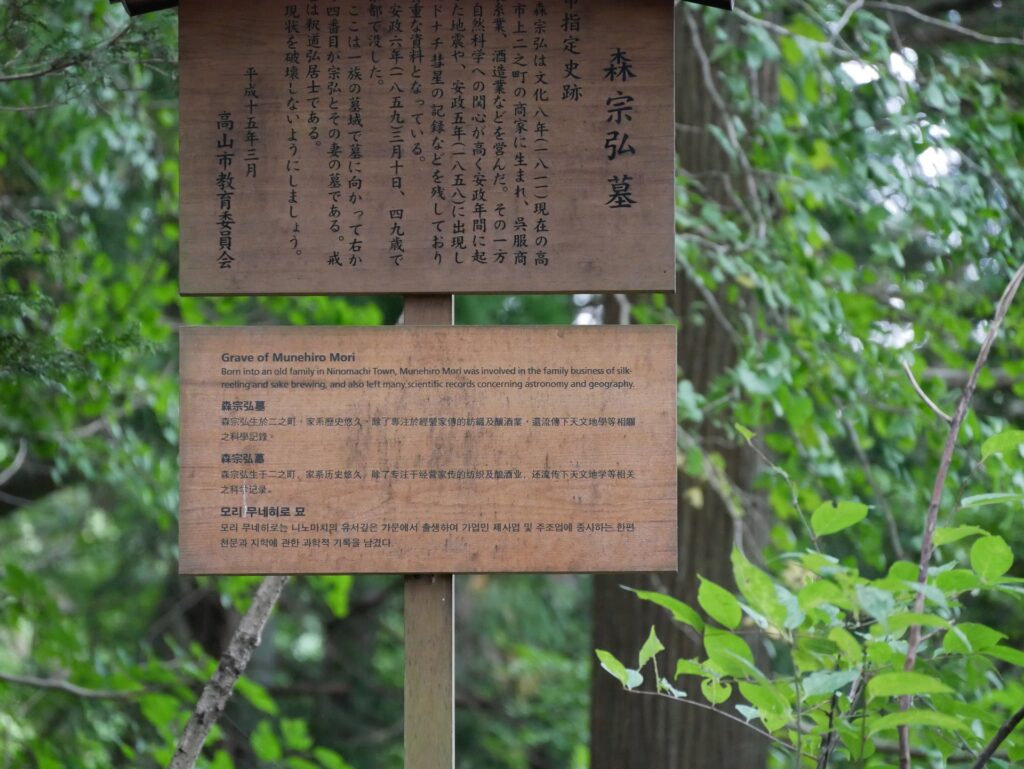 森宗弘墓
市指定史跡
森宗弘は文化八年(一八一一)現在の高
市上二之町の商家に生まれ、呉服商
糸業、酒造業などを営んだ。その一方
自然科学への関心が高く安政年間に起
た地震や、安政五年(一八五八)に出現し
ドナチ彗星の記録などを残しており
重な資料となっている。
安政六年(一八五九三月十日、四九歳で
都で没した。
ここは一族の墓域で墓に向かって右か
四番目が宗弘とその妻の墓である。戒
は釈道弘居士である。
現状を破壊しないようにしましょう。
平成十五年三月
高山市教育委員会
Grave of Munehiro Mori
Born into an old family in Ninomachi Town, Munehiro Mori was involved in the family business of silk-
reeling and sake brewing, and also left many scientific records concerning astronomy and geography.
森宗弘墓
森宗弘生於二之町，家系歷史悠久，除了專注於經營家傳的紡織及釀酒業，還流傳下天文地學等相關
之科學記錄。
森宗弘墓
森宗弘生于二之町，家系历史悠久，除了专注于经营家传的纺织及酿酒业，还流传下天文地学等相关
之科学记录。
모리 무네히로 묘
모리 무네히로는 니노마치의 유서깊은 가문에서 출생하여 가업인 제사업 및 주조업에 종사하는 한편
천문과 지학에 관한 과학적 기록을 남겼다.